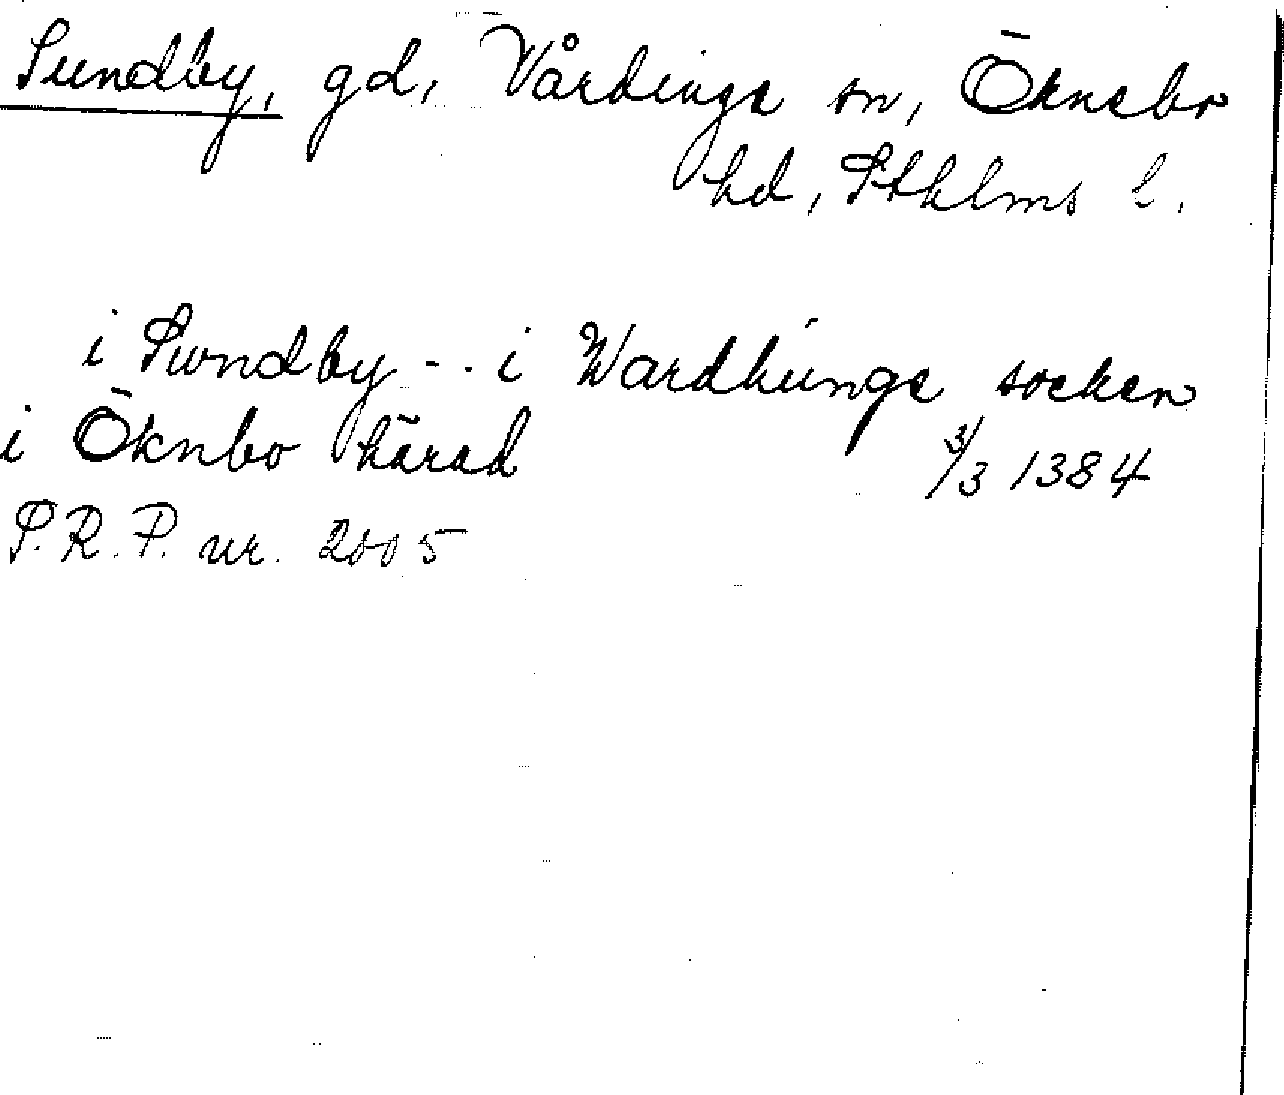 Sundby, gd, Vårdinge sn, Öknebo
hd, Sthlms l.
i Swndby - - i Wardhunge socken
i Öknbo härad 3/3 1384
S.R.P. nr. 2005